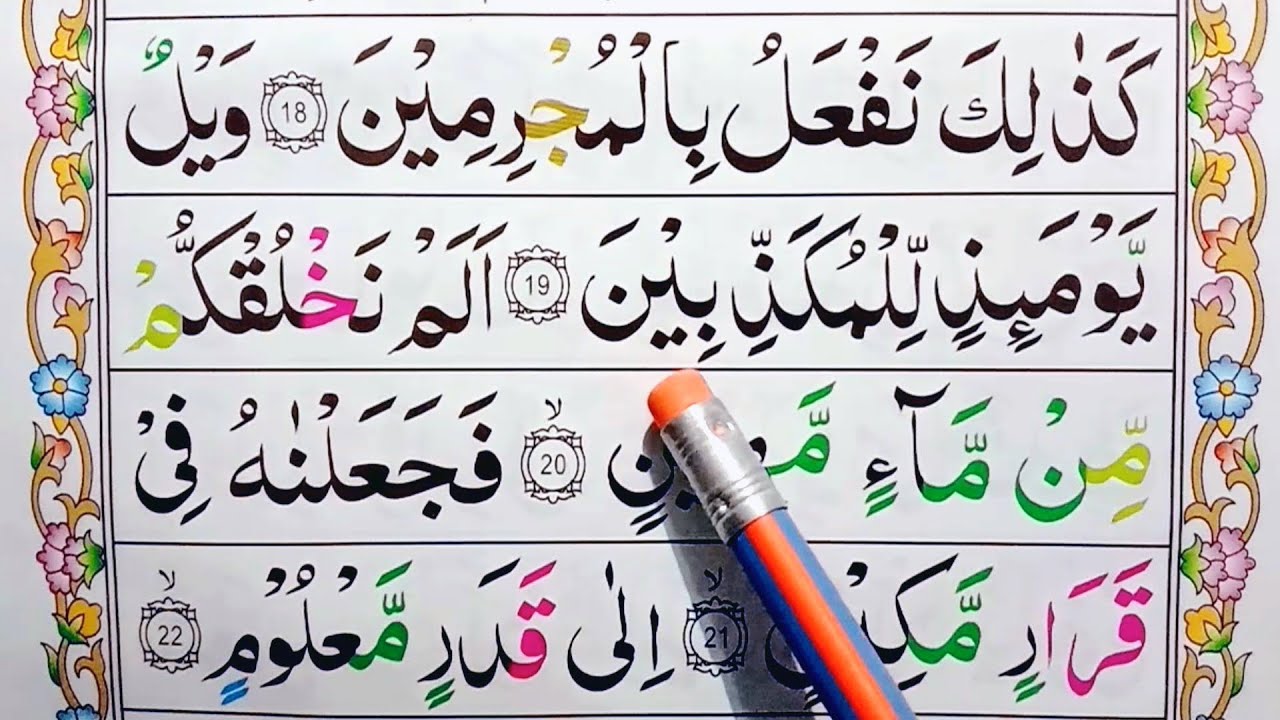 كَذٰلِكَ نَفْعَلُ بِالْمُجْرِمِيْنَ 18 وَيْلٌ
يَّوْمَىِٕذٍ لِّلْمُكَذِّبِيْنَ 19 اَلَمْ نَخْلُقْكُّمْ
مِّنْ مَّآءٍ مَّهِيْنٍ ۙ 20 فَجَعَلْنٰهُ فِيْ
قَرَارٍ مَّكِيْنٍ ۙ 21 اِلٰى قَدَرٍ مَّعْلُوْمٍ ۙ 22